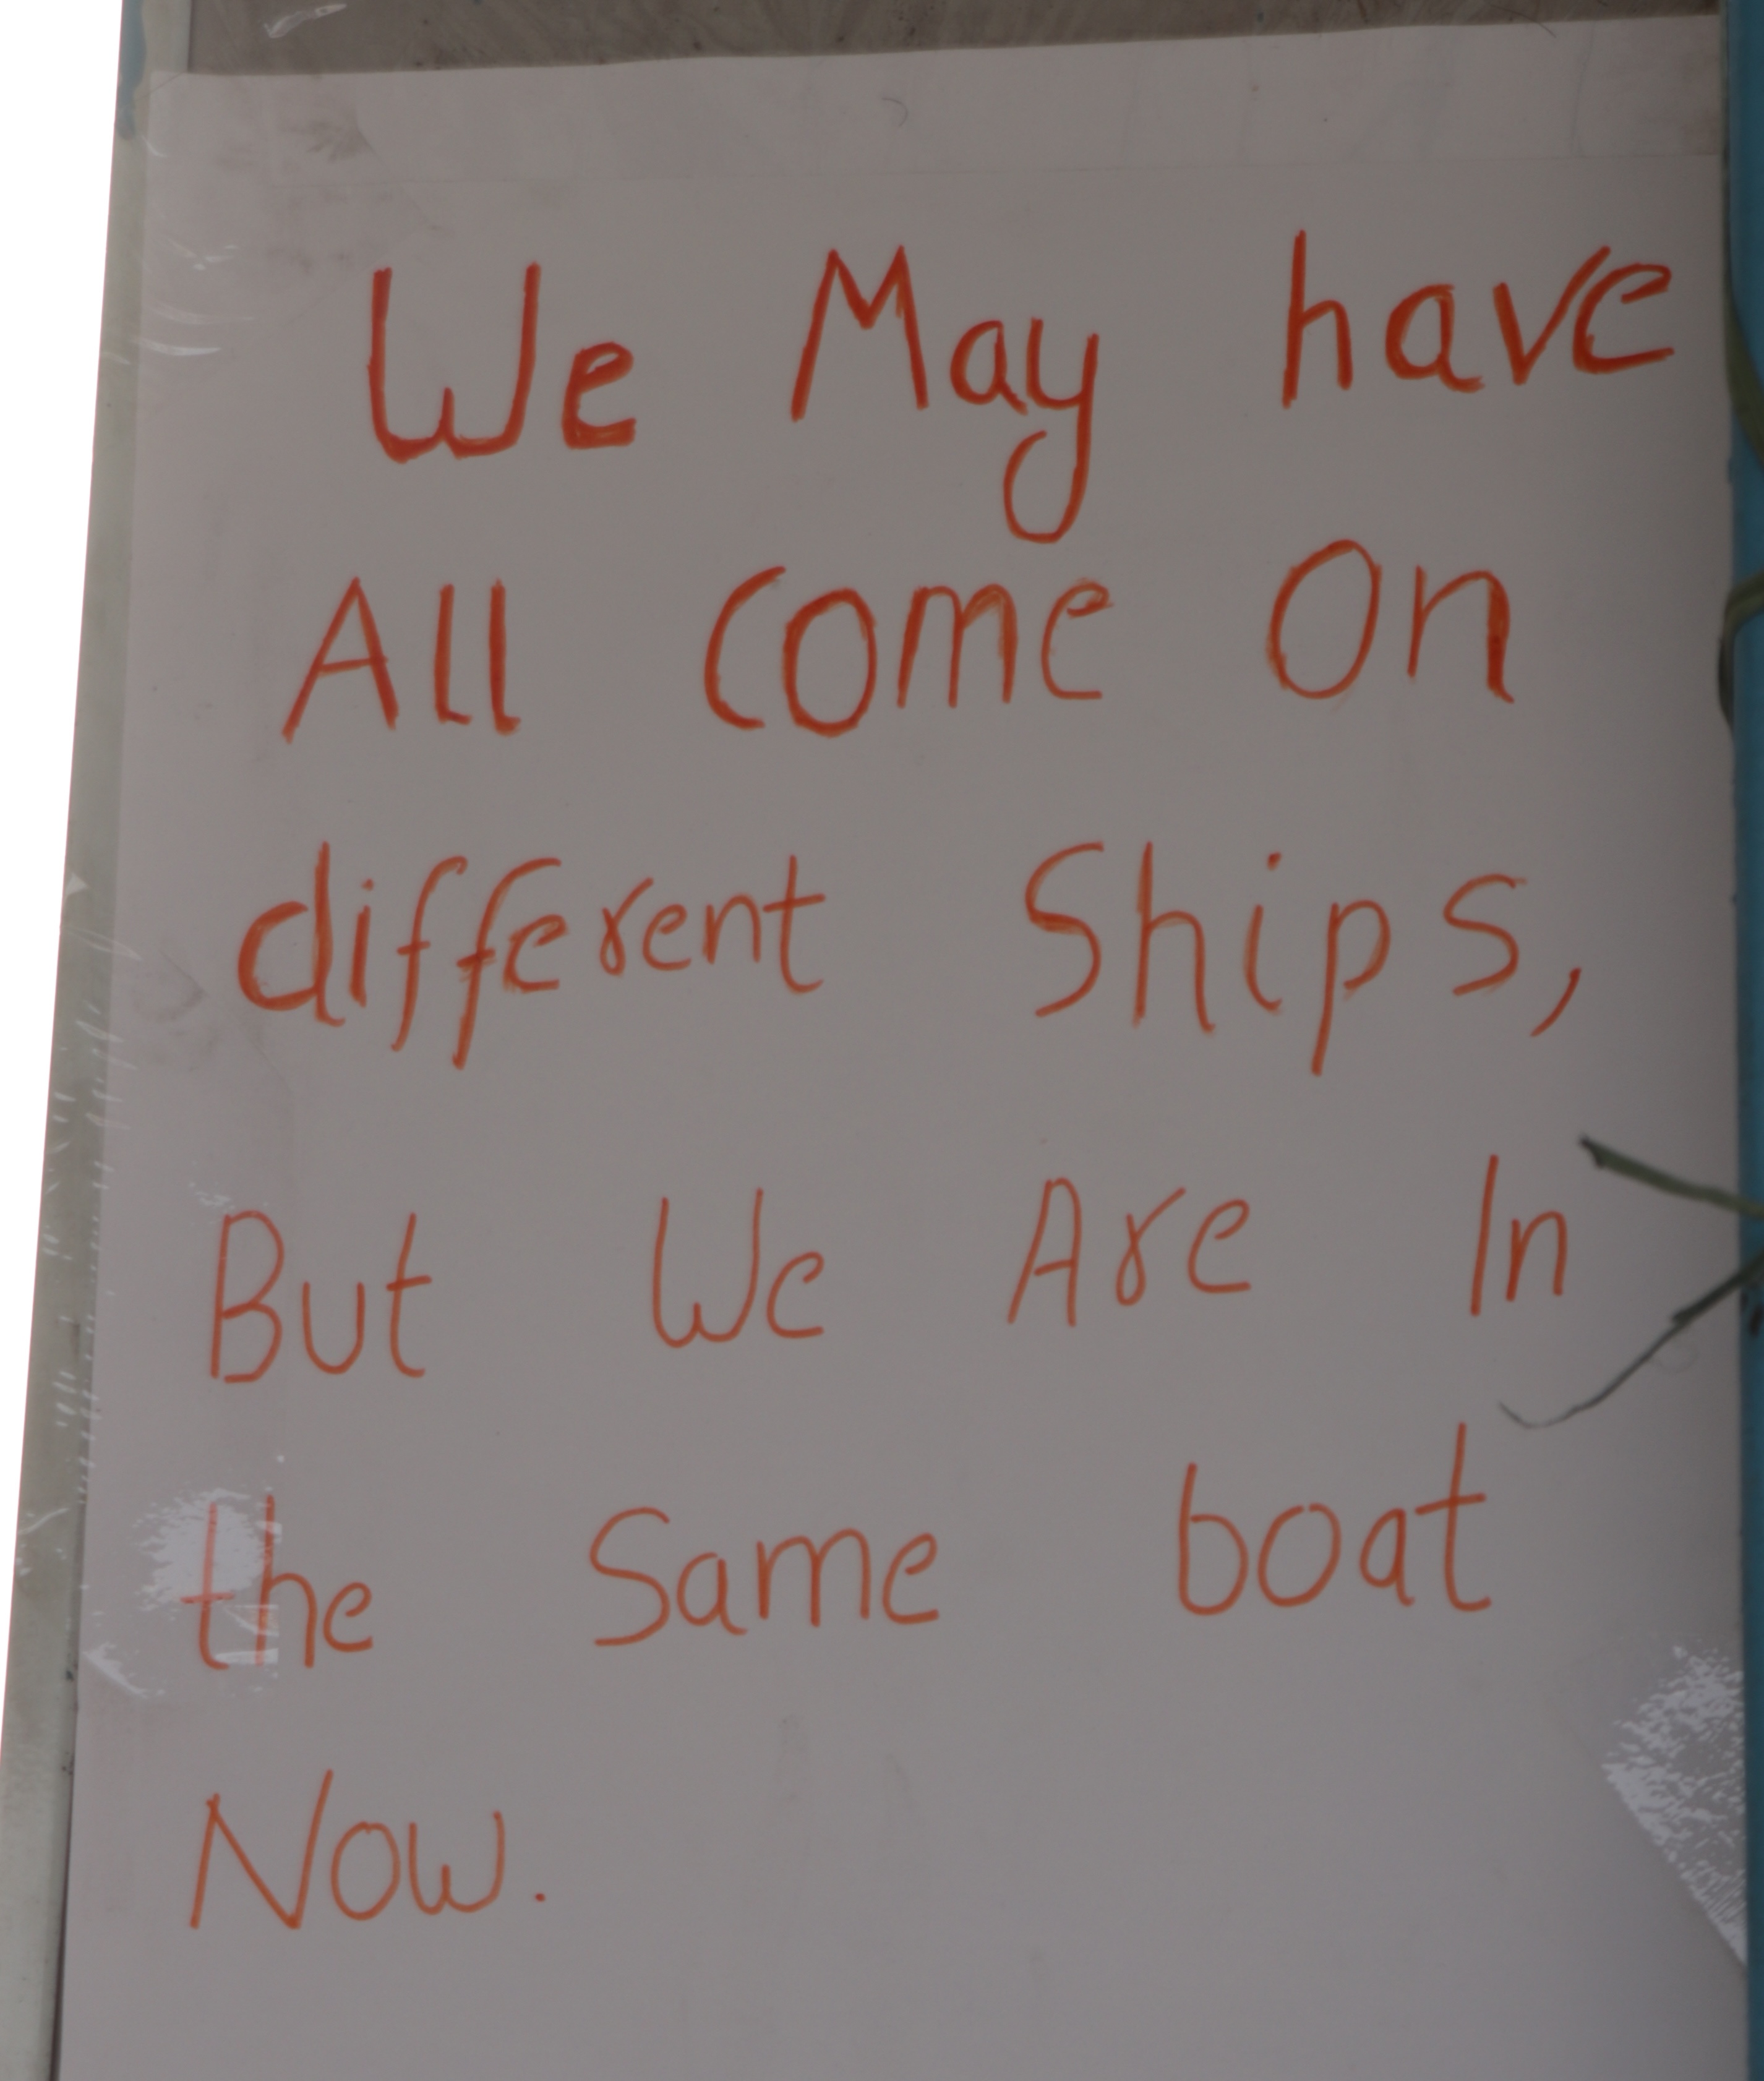 We May have
All Come On
different Ships,
But We Are In
the Same boat
Now.